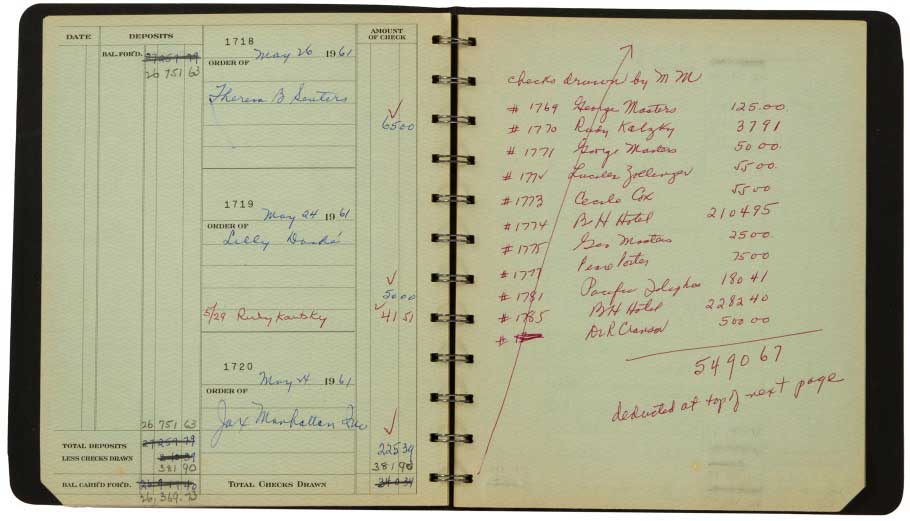 DATE DEPOSITS AMOUNT OF CHECK
BAL. FOR'D. 27 259 79
26 751 63
1718
ORDER OF May 26 1961
Theresa B Souters
65 00
1719
ORDER OF May 24 1961
Lilly Daché
50 00
5/29 Rudy Kautsky 41 51
1720
ORDER OF May 24 1961
Jax Manhattan Inc
26 751 63
TOTAL DEPOSITS 27 259 79 225 39
LESS CHECKS DRAWN
381 90 381 90
BAL. CARR'D FOR'D. TOTAL CHECKS DRAWN
26,369.73
checks drawn by MM
# 1769 George Masters 125.00
# 1770 Rudy Katzky 37 91
# 1771 George Masters 50 00
# 1772 Lucille Zollinger 55 00
# 1773 Cecile Cox 55 00
# 1774 BH Hotel 2104 95
# 1775 Geo Masters 25 00
# 1777 Porter 75 00
# 1781 Pacific 180 41
# 1785 BH Hotel 2282 40
# Dr R Cranson 500 00
5490 67
deducted at top of next page